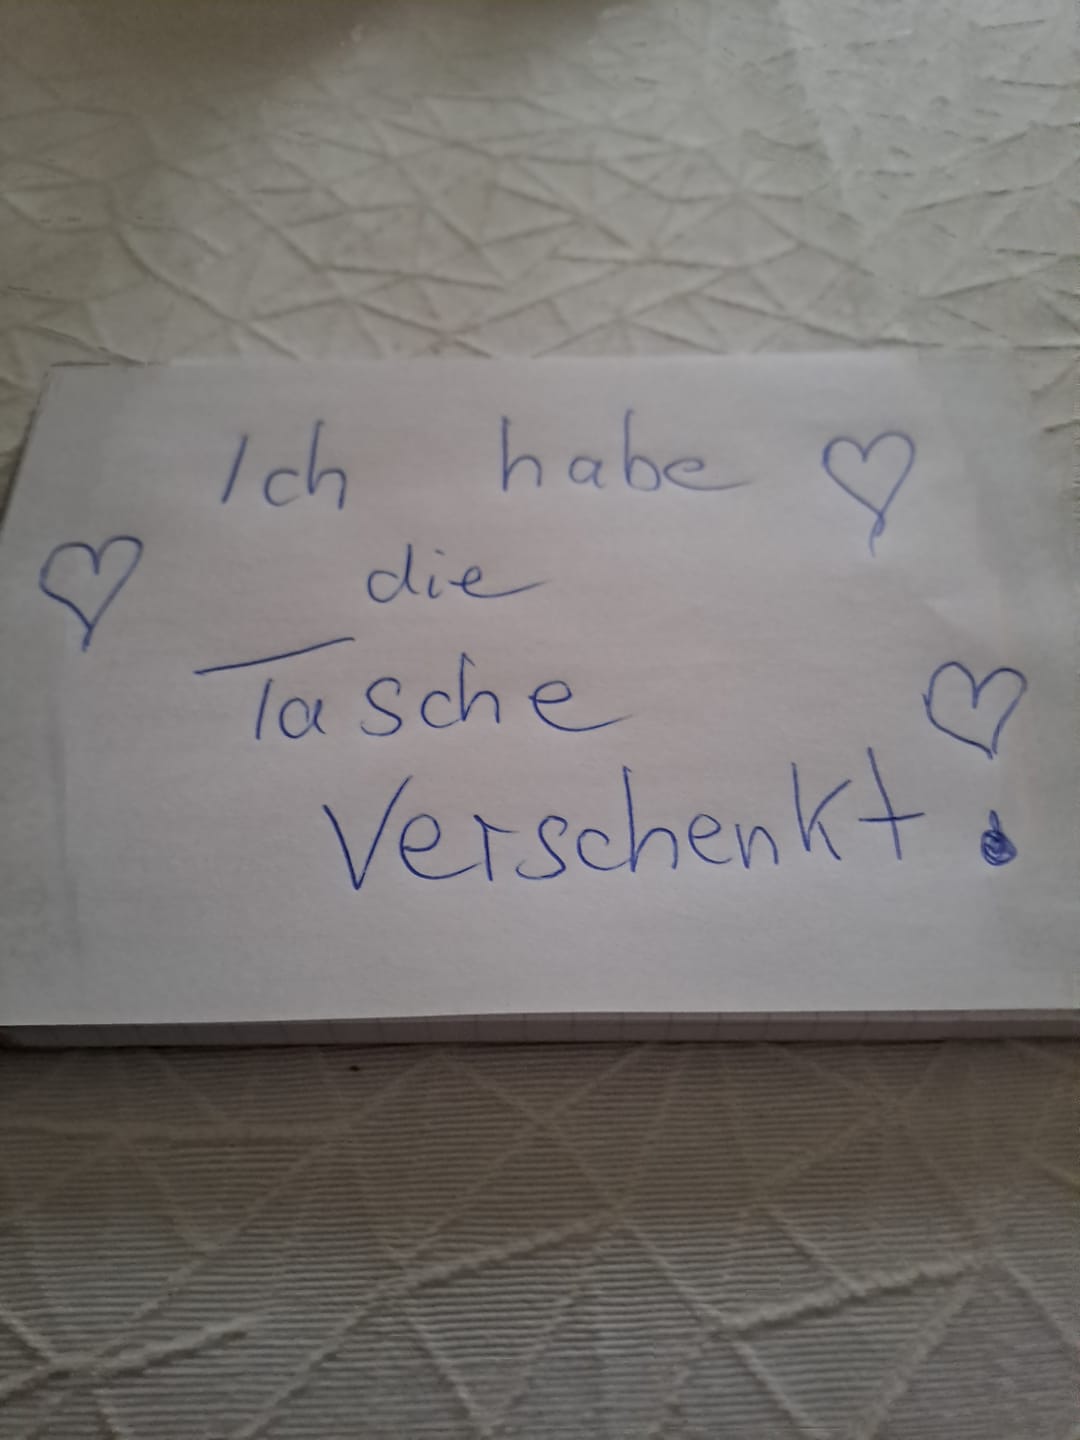 Ich habe
die
Tasche
Verschenkt.